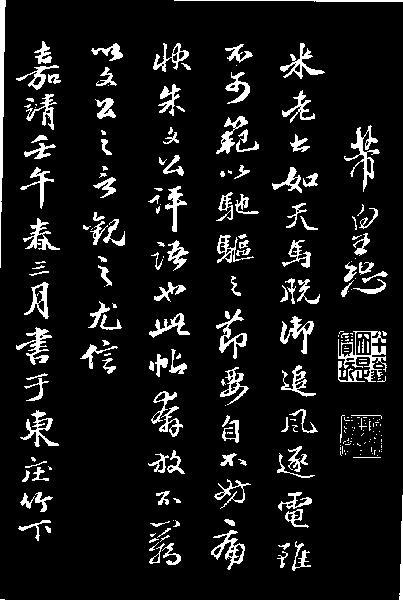 芾皇恐
米老書如天馬脫御追風逐電雖
不可範以馳驅之節要自不妨痛
快朱文公評語也此帖奔放不羈
以文公之言觀之尤信
嘉靖壬午春三月書于東庄竹下